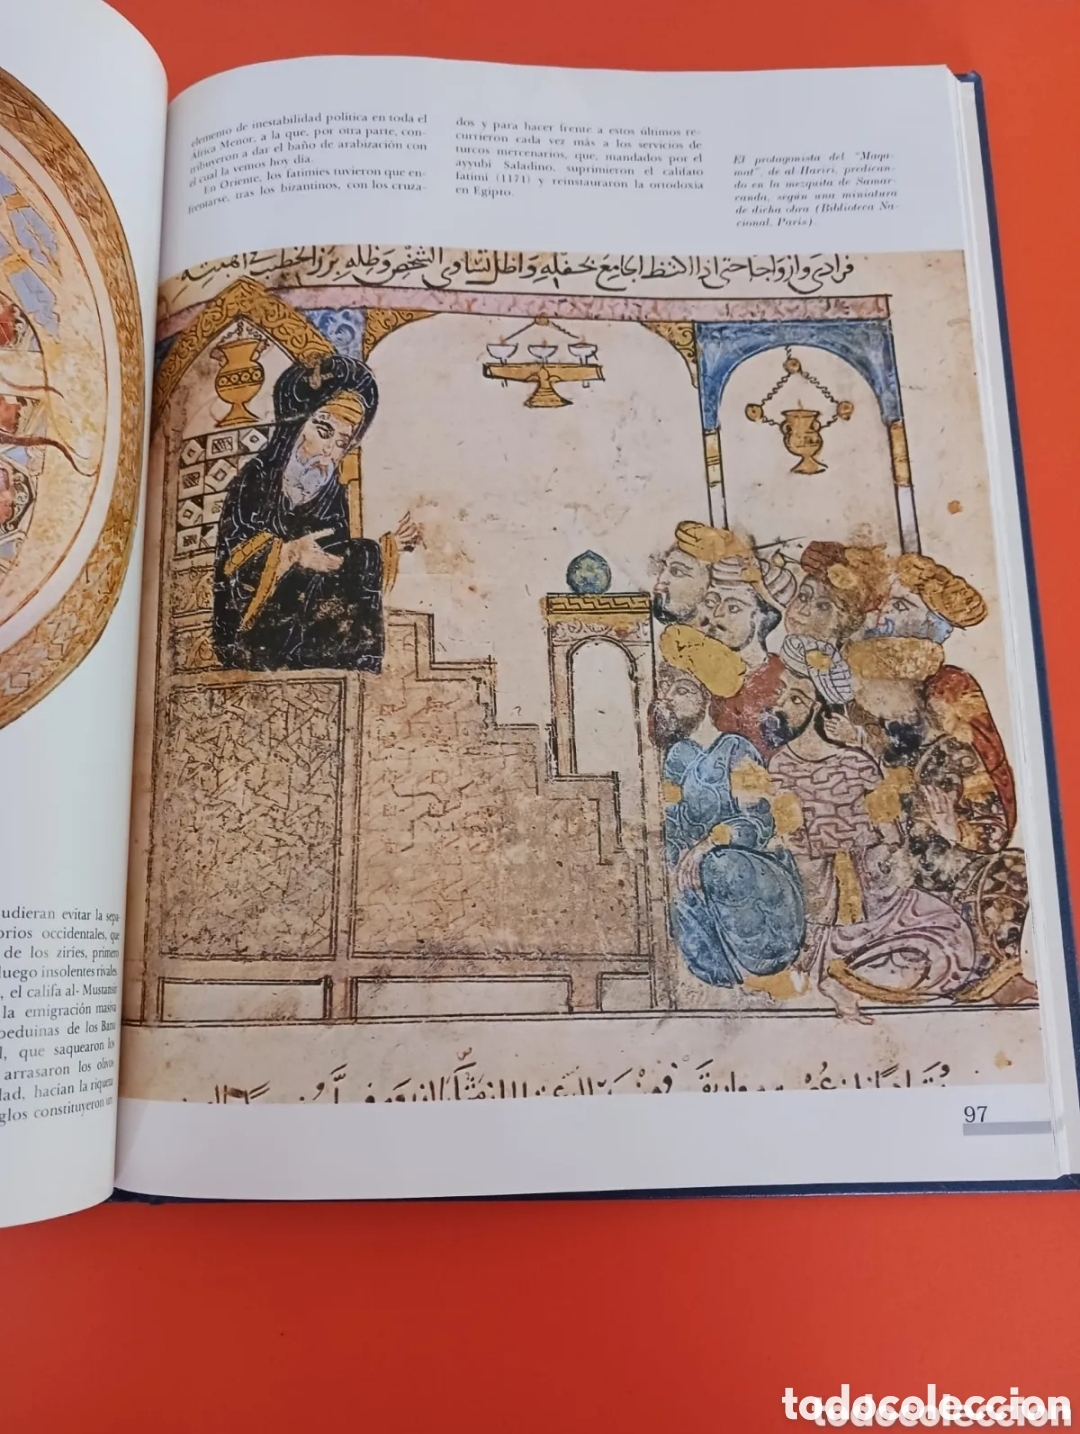 elemento de inestabilidad política en toda el
África Menor, a la que, por otra parte, con-
tribuyeron a dar el baño de arabización con
el cual la vemos hoy día.
En Oriente, los fatimíes tuvieron que en-
frentarse, tras los bizantinos, con los cruza-
dos y para hacer frente a estos últimos re-
currieron cada vez más a los servicios de
turcos mercenarios, que, mandados por el
ayyubi Saladino, suprimieron el califato
fatimí (1171) y reinstauraron la ortodoxia
en Egipto.
El protagonista del "Maqa-
mat", de al Hariri, predican-
do en la mezquita de Samar-
canda, según una miniatura
de dicha obra (Biblioteca Na-
cional, París).
فرادى وازواجا حتى اذا اكتظ الجامع بحفله واظل تساوى الشخص وظله برز الخطيب
udieran evitar la sepa-
orios occidentales, que
de los ziríes, primero
luego insolentes rivales
, el califa al-Mustansir
la emigración masiva
beduinas de los Banu
l, que saquearon los
arrasaron los olivos
dad, hacían la riqueza
glos constituyeron un
97
todocoleccion
todocoleccion